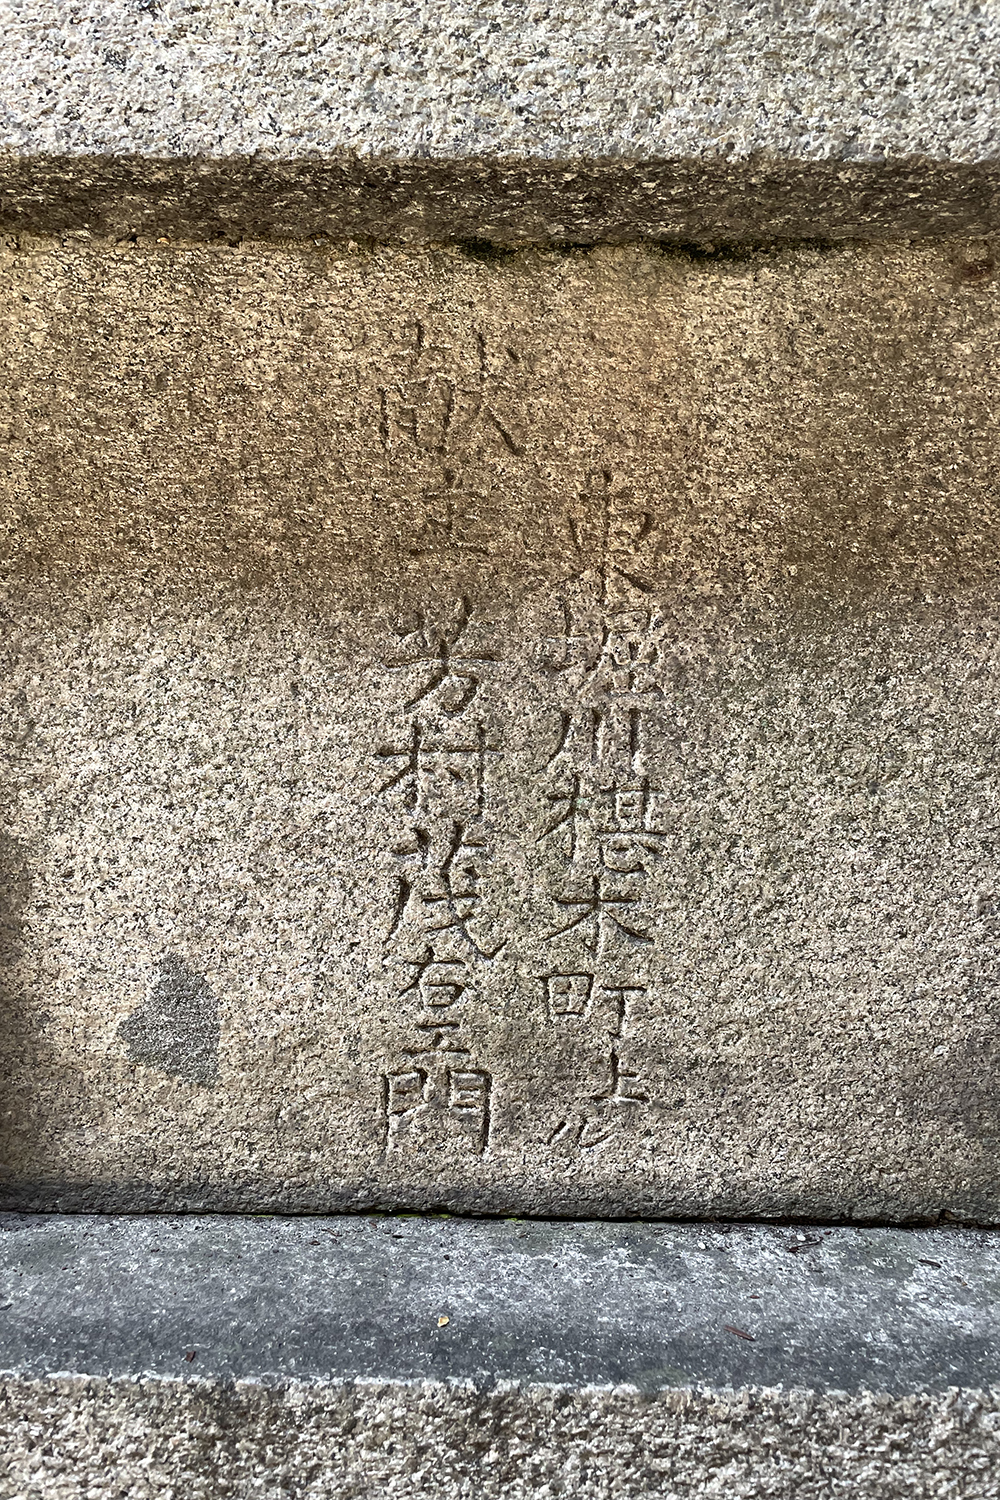 東堀川椹木町上ル
献主芳村茂右エ門